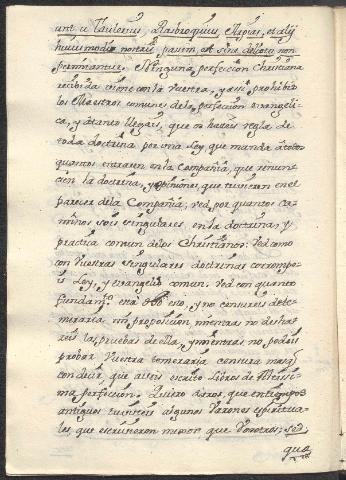 unt ut Taulerius, Rusbroquius, Harpias, et alij
huiusmodi nostris passim, et sine delectu non
permittantur. Ninguna perfeccion Christiana
recibida viene con la vuestra, y assi prohibis
los Maestros comunes de la perfeccion evangeli-
ca, y átanto llegais, que os haceis regla de
toda doctrina por una Ley, que manda á todos
quantos entraren en la Compañia, que renun-
cien la doctrina, y opiniones, que tuvieren en el
parecer de la Compañia; ved, por quantos ca-
minos sois singulares en la doctrina, y
practica comun de los Christianos: Ved como
con vuestras singulares doctrinas corrompe-
is Ley, y evangelio comun. Ved con quanto
fundam.to está esto, y no censureis de te-
meraria mi proposicion, mientras no desha-
reis las pruebas de ella, y mientras no podeis
probar vuestra temeraria censura
con decir, que aveis escrito Libros de
ma perfeccion. Quiero daros, que en tiempos
antiguos tuvisteis algunos Varones espiritua-
les, que escrivieron mejor que vosotros: sed,
que